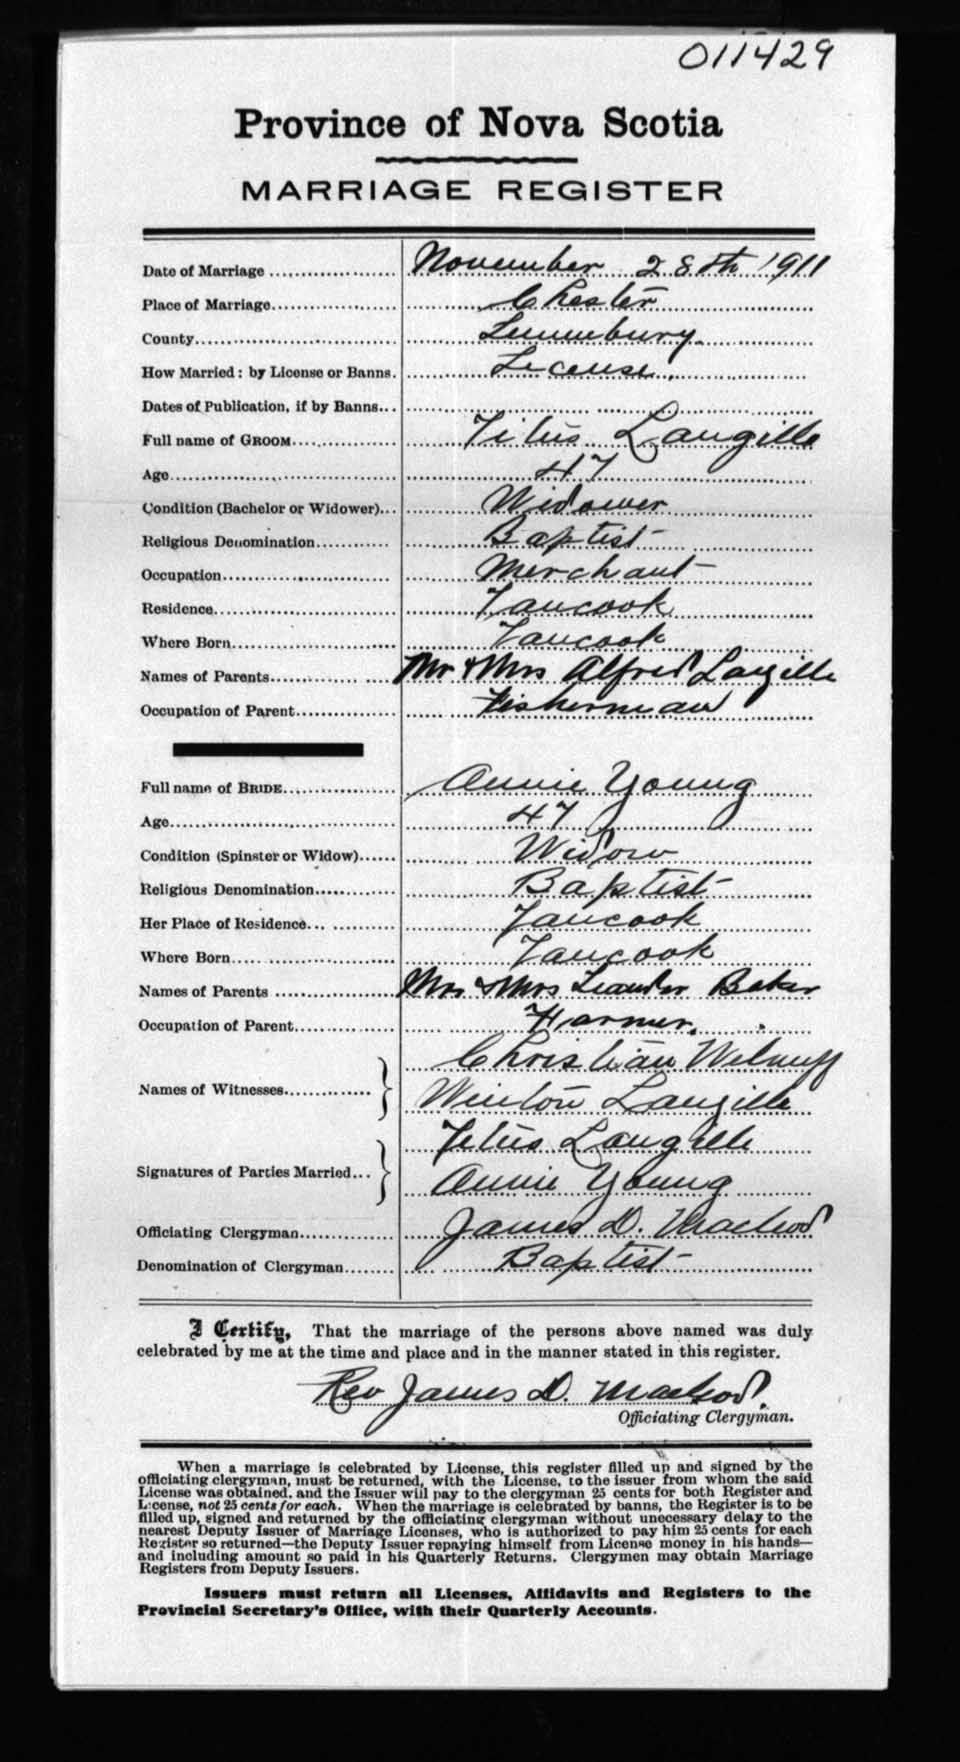 011429
Province of Nova Scotia
MARRIAGE REGISTER
Date of Marriage ..................... November 28th 1911
Place of Marriage..................... Chester
County..................... Lunenburg.
How Married: by License or Banns. License.
Dates of Publication, if by Banns...
Full name of GROOM..................... Titus Langille
Age..................... 47
Condition (Bachelor or Widower)... Widower
Religious Denomination............ Baptist
Occupation..................... Merchant
Residence..................... Tancook
Where Born..................... Tancook
Names of Parents..................... Mr & Mrs Alfred Langille
Occupation of Parent............... Fisherman
Full name of BRIDE..................... Annie Young
Age..................... 47
Condition (Spinster or Widow)...... Widow
Religious Denomination............ Baptist
Her Place of Residence... .......... Tancook
Where Born..................... Tancook
Names of Parents ..................... Mr & Mrs Leander Baker
Occupation of Parent............... Farmer.
Christian
Names of Witnesses...............
Winton Langille
Titus Langille
Signatures of Parties Married...
Annie Young
Officiating Clergyman............... James D. Macleod
Denomination of Clergyman........ Baptist
I Certify, That the marriage of the persons above named was duly
celebrated by me at the time and place and in the manner stated in this register.
Rev James D. Macleod.
Officiating Clergyman.
When a marriage is celebrated by License, this register filled up and signed by the
officiating clergyman, must be returned, with the License, to the issuer from whom the said
License was obtained, and the Issuer will pay to the clergyman 25 cents for both Register and
License, not 25 cents for each. When the marriage is celebrated by banns, the Register is to be
filled up, signed and returned by the officiating clergyman without unnecessary delay to the
nearest Deputy Issuer of Marriage Licenses, who is authorized to pay him 25 cents for each
Register so returned—the Deputy Issuer repaying himself from License money in his hands—
and including amount so paid in his Quarterly Returns. Clergymen may obtain Marriage
Registers from Deputy Issuers.
Issuers must return all Licenses, Affidavits and Registers to the
Provincial Secretary's Office, with their Quarterly Accounts.